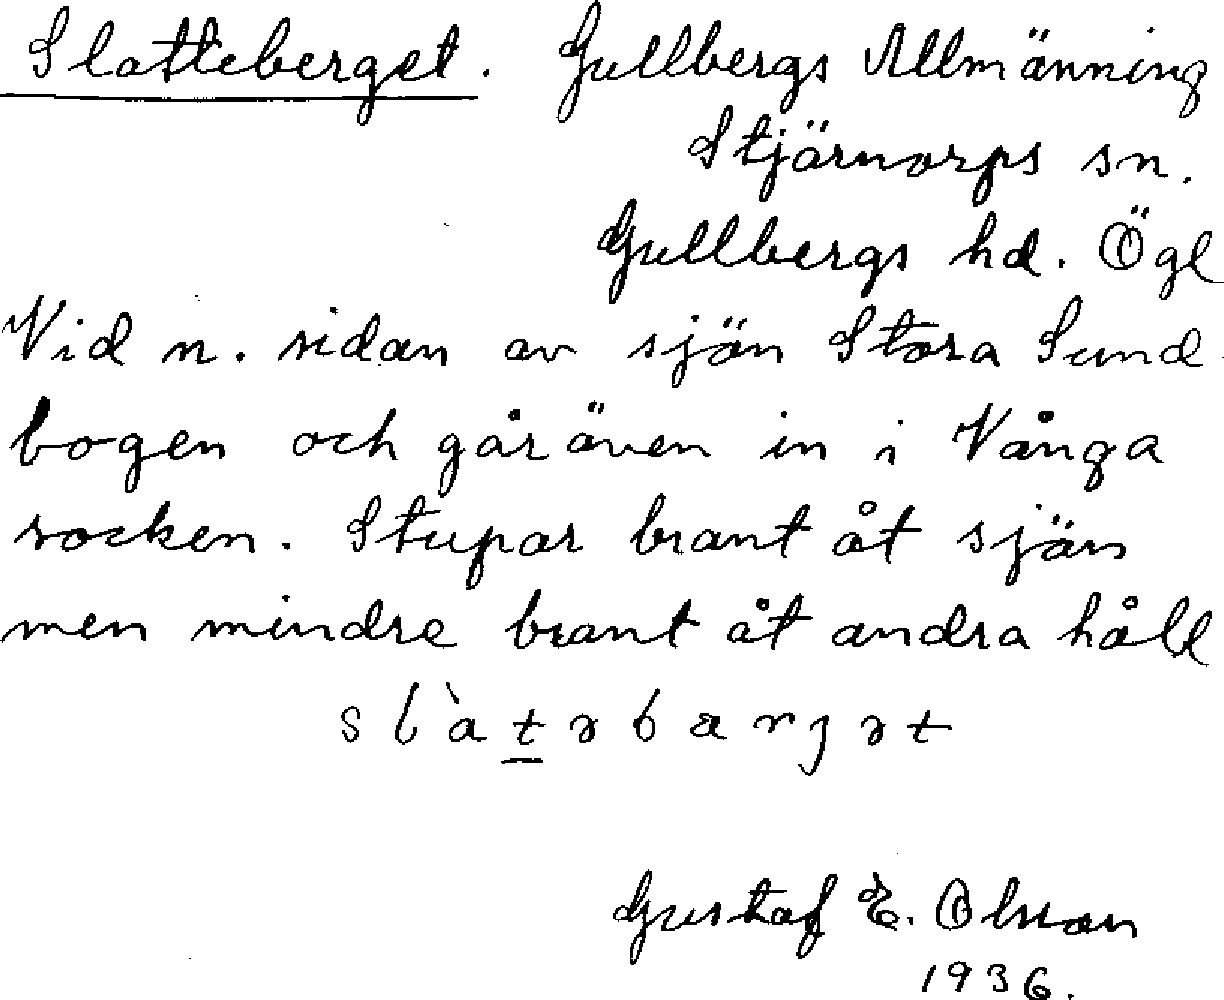 Slatteberget. Gullbergs Allmänning
Stjärnorps sn.
Gullbergs hd. Ögl
Vid n. sidan av sjön Stora Sund-
bogen och går även in i Vånga
socken. Stupar brant åt sjön
men mindre brant åt andra håll
slàt̲əbærjət
Gustaf E. Olsson
1936.